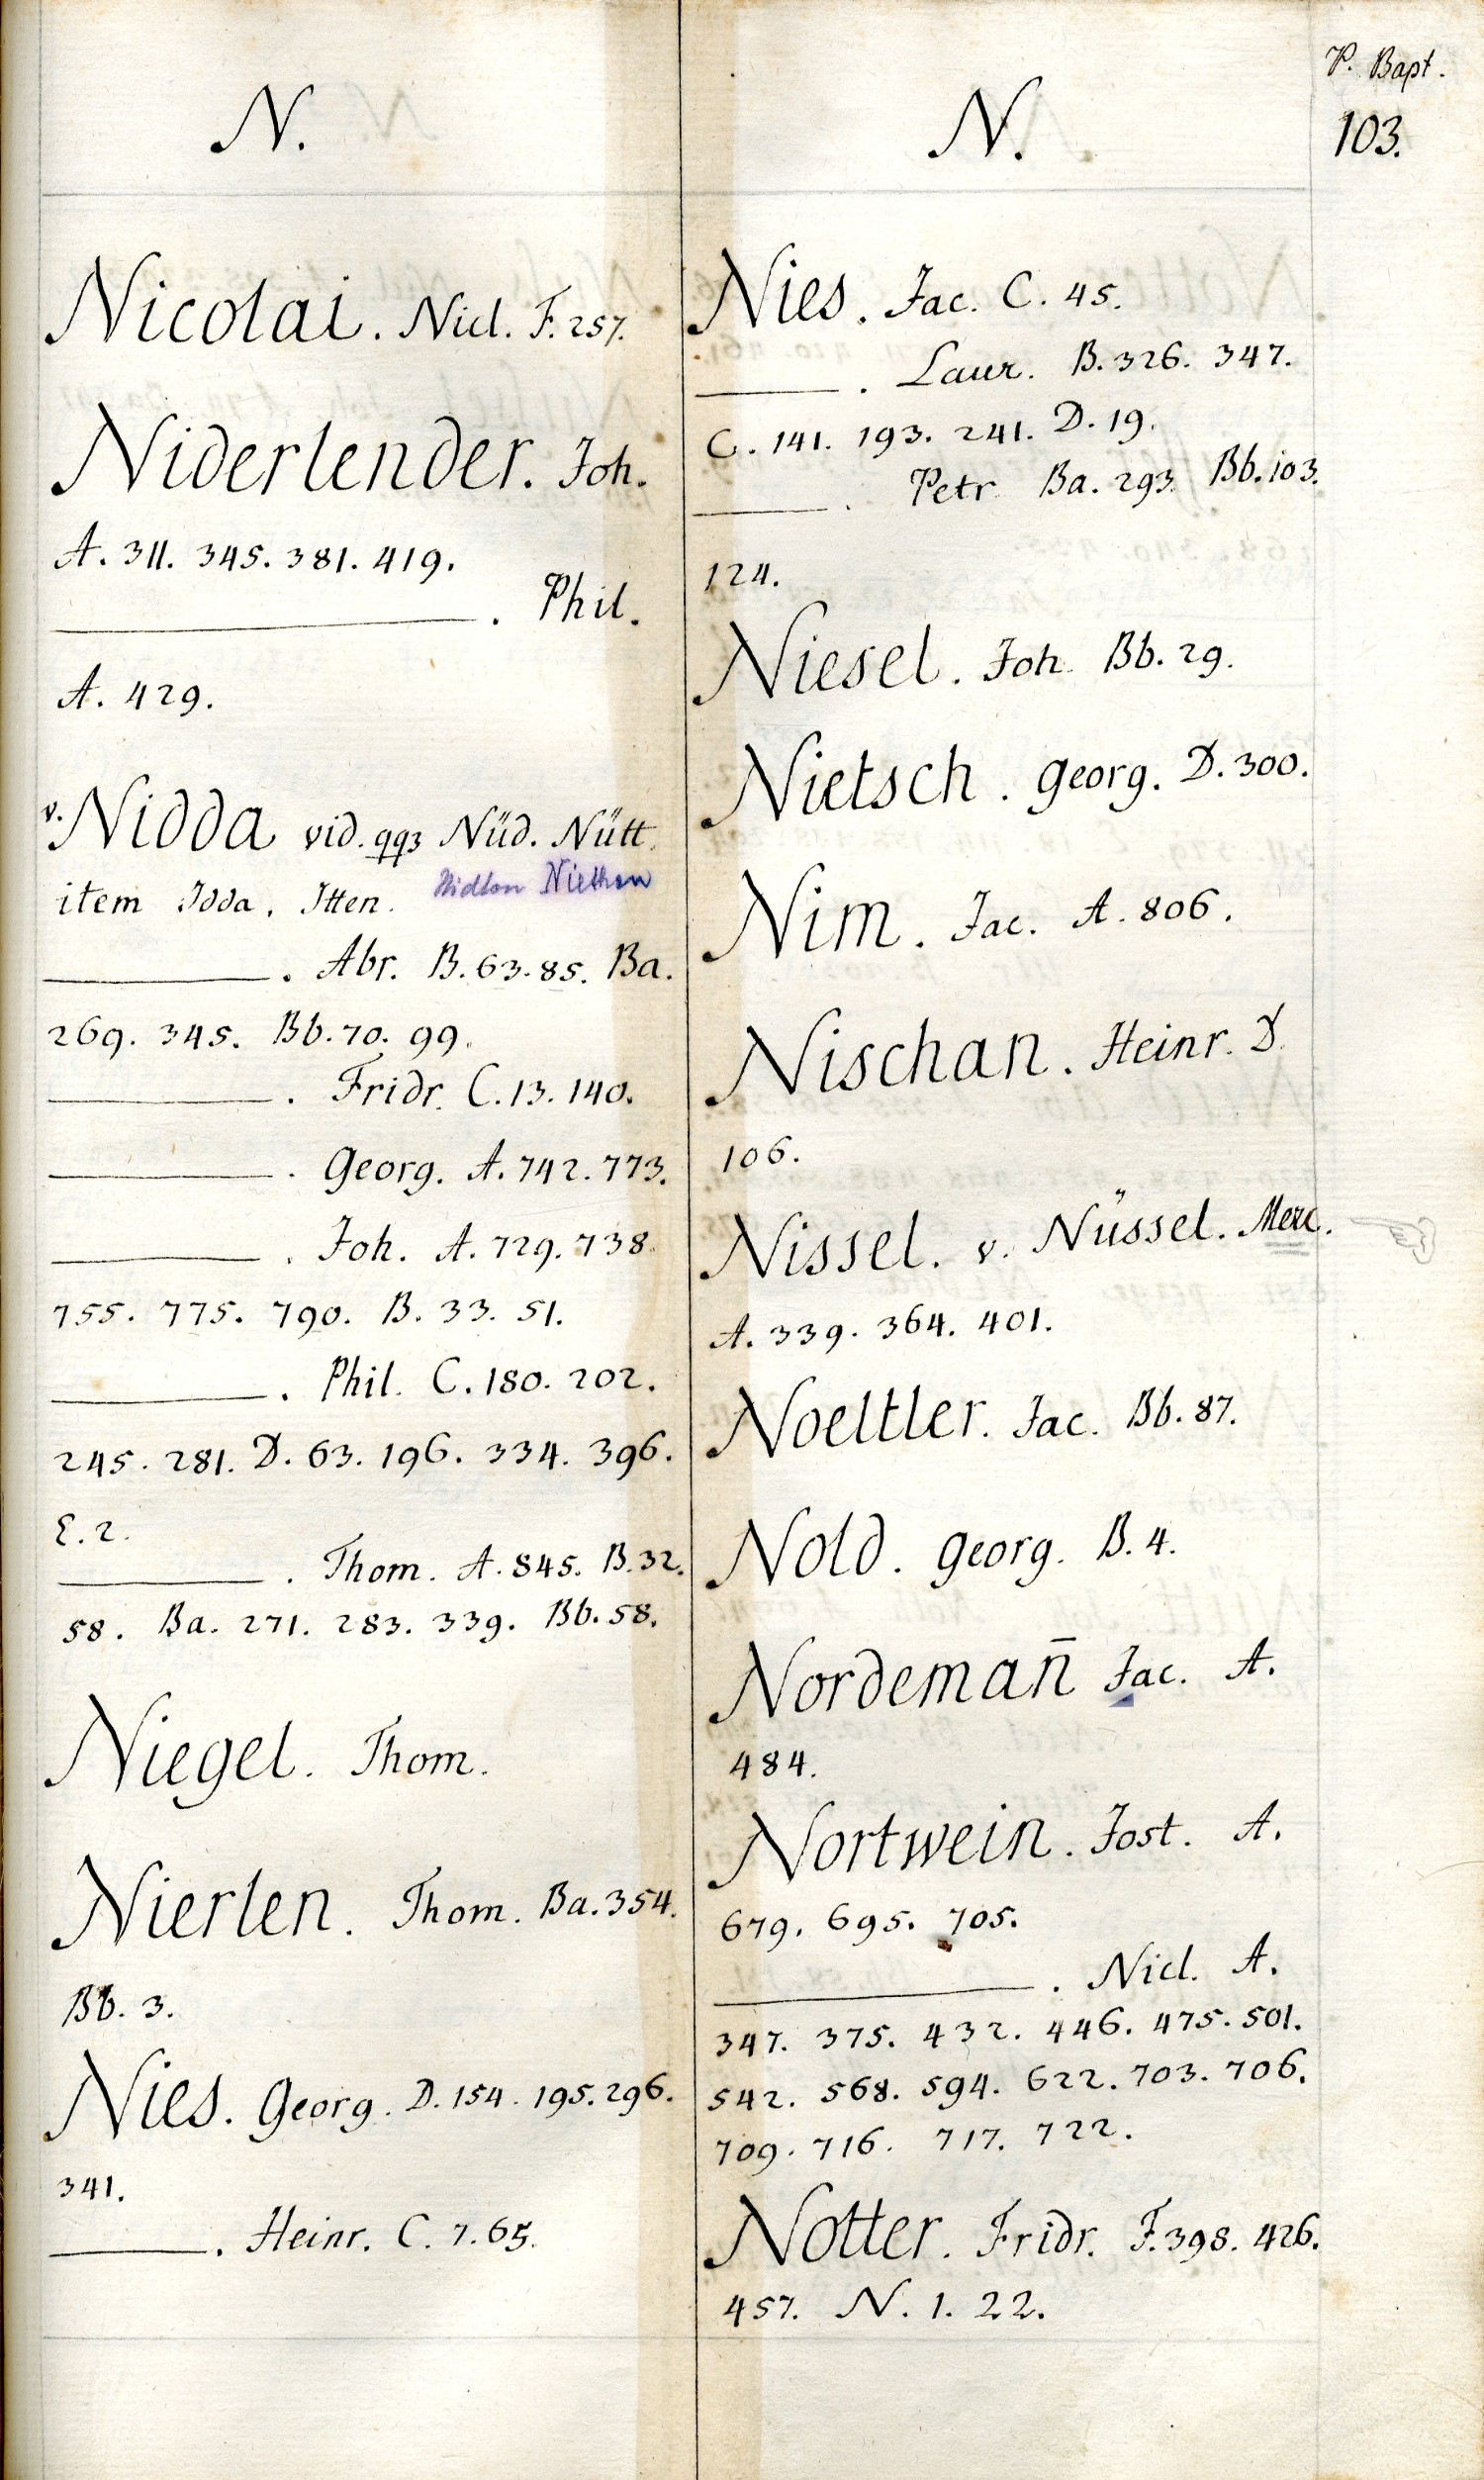 P. Bapt.
103.
N.
Nicolai. Nicl. F. 257.
Niderlender. Joh.
A. 311. 345. 381. 419.
———. Phil.
A. 429.
v. Nidda vid. qq3 Nüd. Nütt.
item Idda. Itten. Nidton Niethen
———. Abr. B. 63. 85. Ba.
269. 345. Bb. 70. 99.
———. Fridr. C. 13. 140.
———. Georg. A. 742. 773.
———. Joh. A. 729. 738.
755. 775. 790. B. 33. 51.
———. Phil. C. 180. 202.
245. 281. D. 63. 196. 334. 396.
E. 2.
———. Thom. A. 845. B. 32.
58. Ba. 271. 283. 339. Bb. 58.
Niegel. Thom.
Nierlen. Thom. Ba. 354.
Bb. 3.
Nies. Georg. D. 154. 195. 296.
341.
———. Heinr. C. 7. 65.
N.
Nies. Jac. C. 45.
———. Laur. B. 326. 347.
C. 141. 193. 241. D. 19.
———. Petr. Ba. 293. Bb. 103.
124.
Niesel. Joh. Bb. 29.
Nietsch. Georg. D. 300.
Nim. Jac. A. 806.
Nischan. Heinr. D.
106.
Nissel. v. Nüssel. Merc.
A. 339. 364. 401.
Noeltler. Jac. Bb. 87.
Nold. Georg. B. 4.
Nordeman̄ Jac. A.
484.
Nortwein. Jost. A.
679. 695. 705.
———. Nicl. A.
347. 375. 432. 446. 475. 501.
542. 568. 594. 622. 703. 706.
709. 716. 717. 722.
Notter. Fridr. F. 398. 426.
457. N. 1. 22.